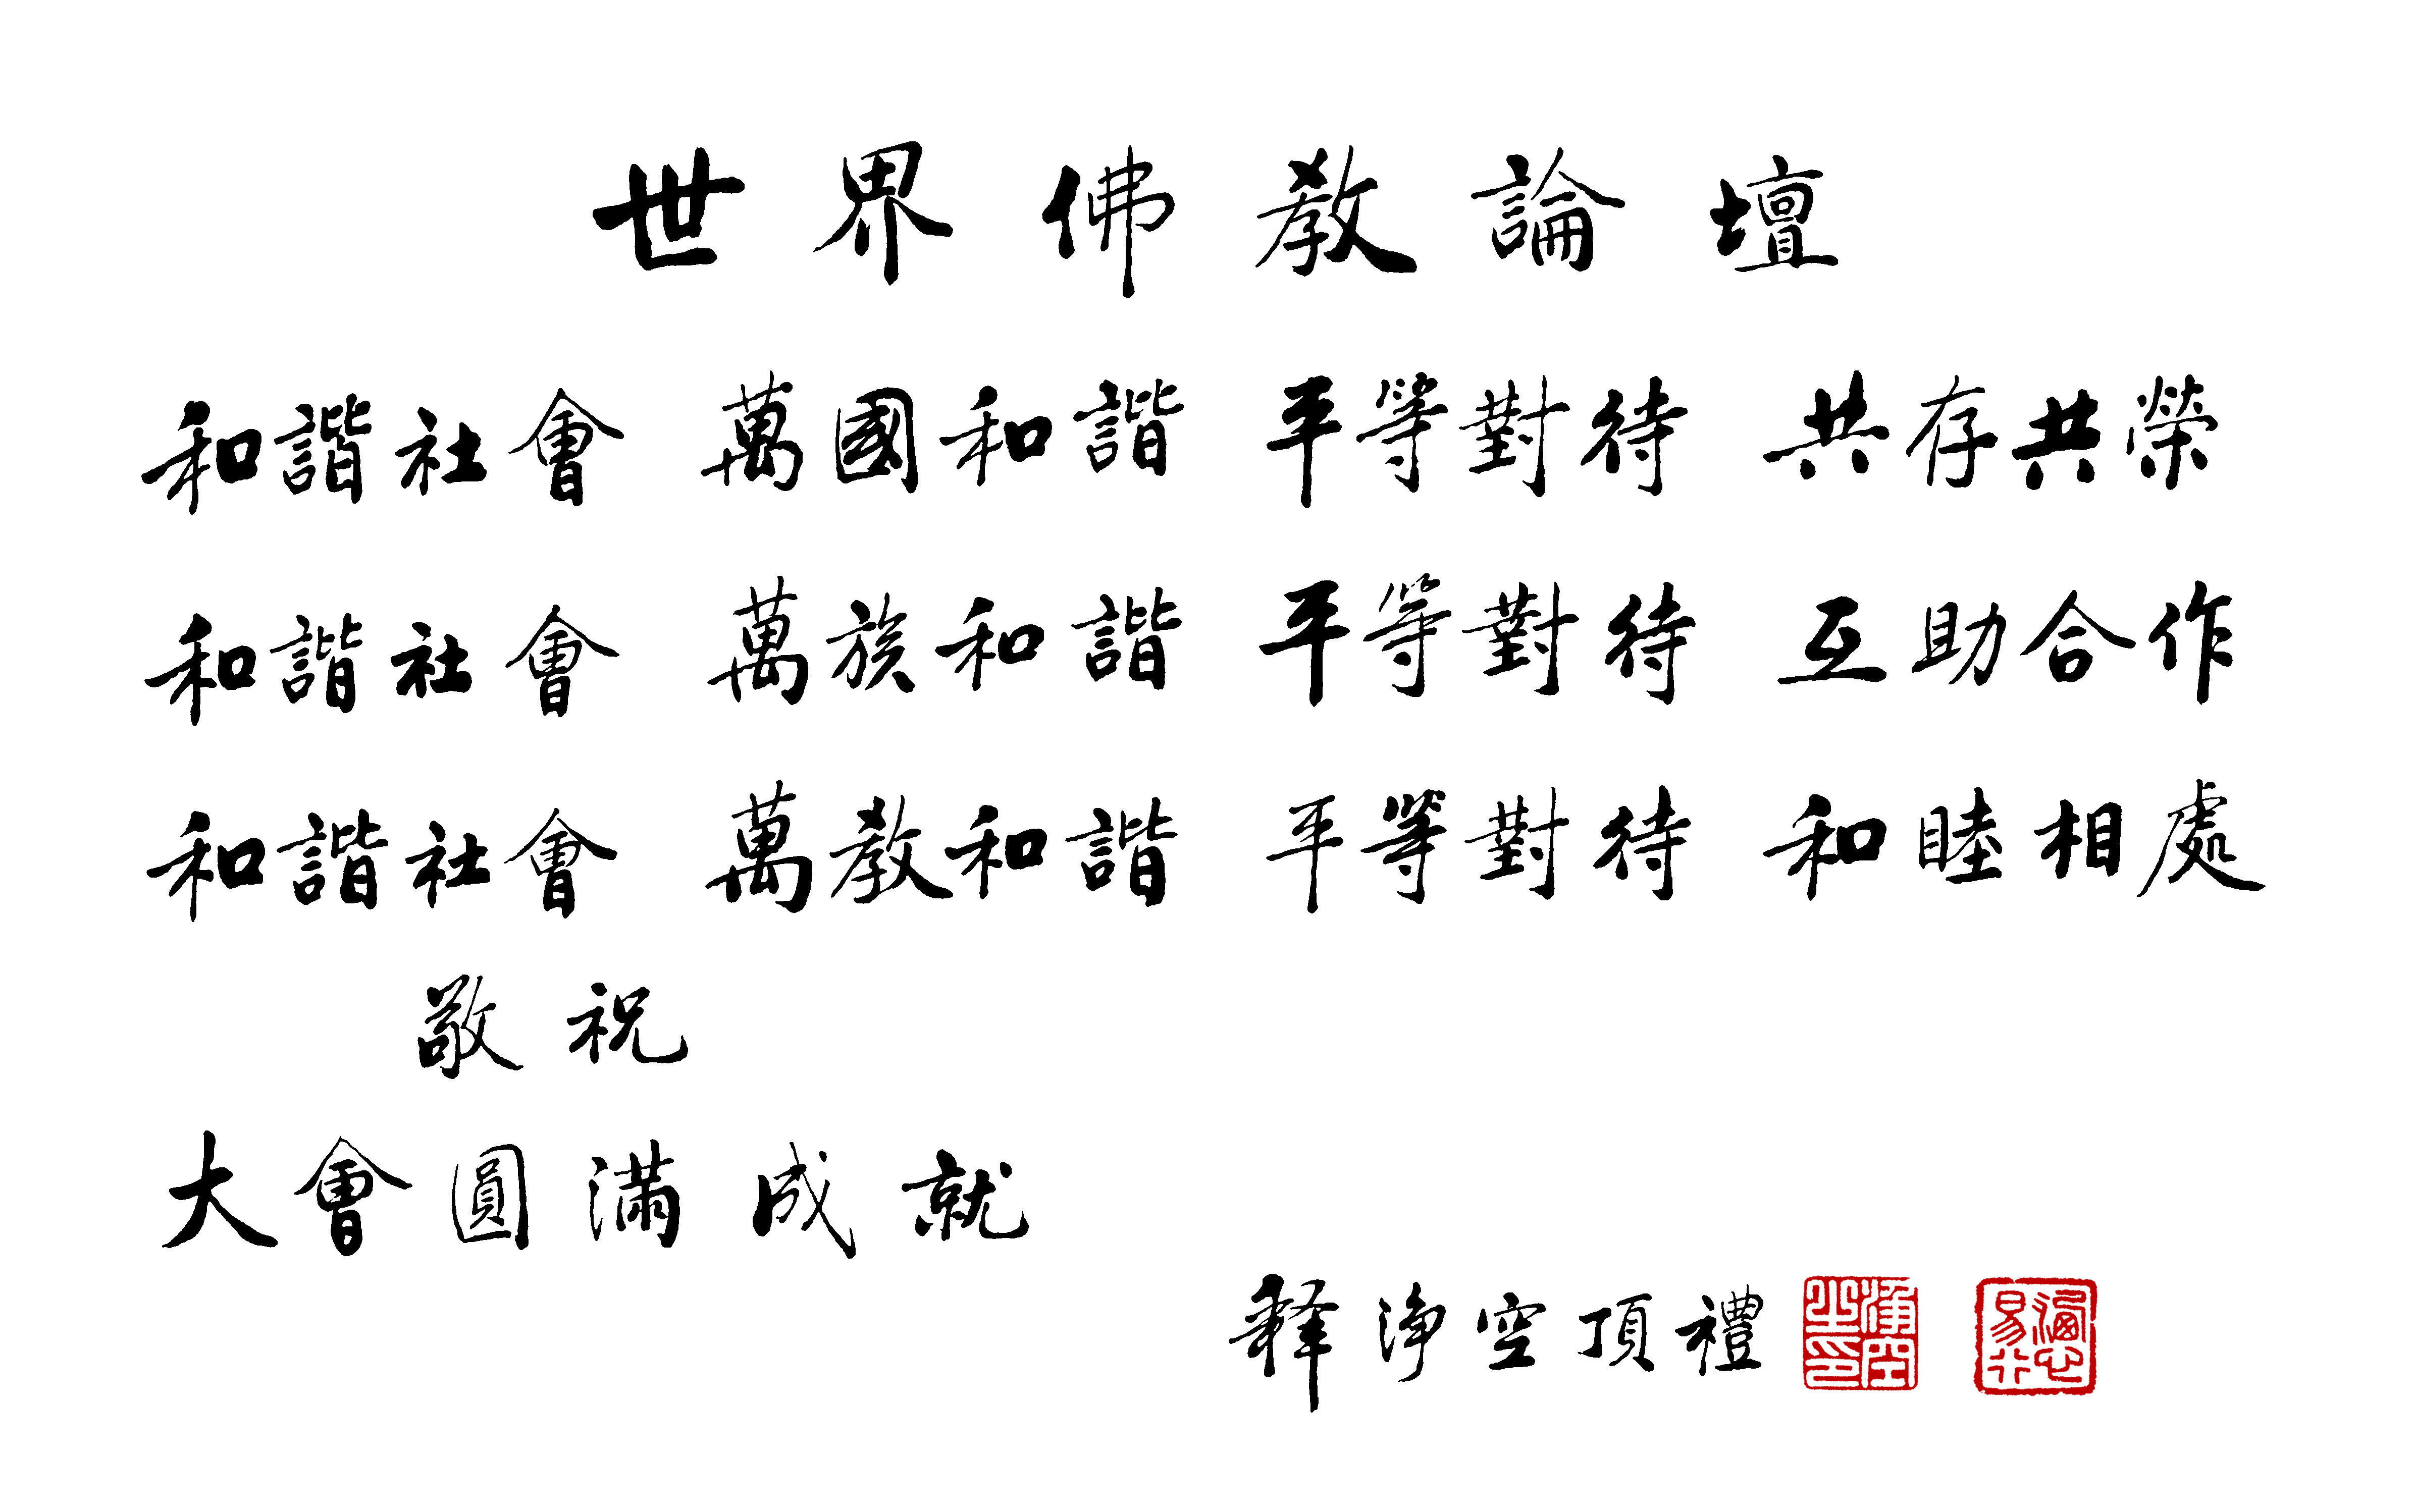 世界佛教論壇
和諧社會 萬國和諧 平等對待 共存共榮
和諧社會 萬族和諧 平等對待 互助合作
和諧社會 萬教和諧 平等對待 和睦相處
敬祝
大會圓滿成就
釋淨空頂禮